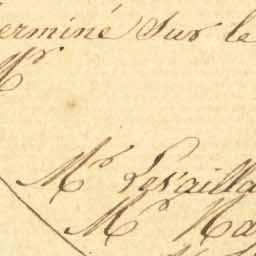 terminé sur le
Mr
Mr Levailla
Mr Na